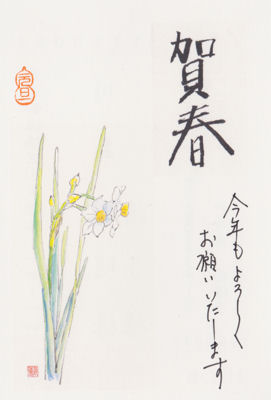 賀春
今年もよろしく
お願いいたします
元旦